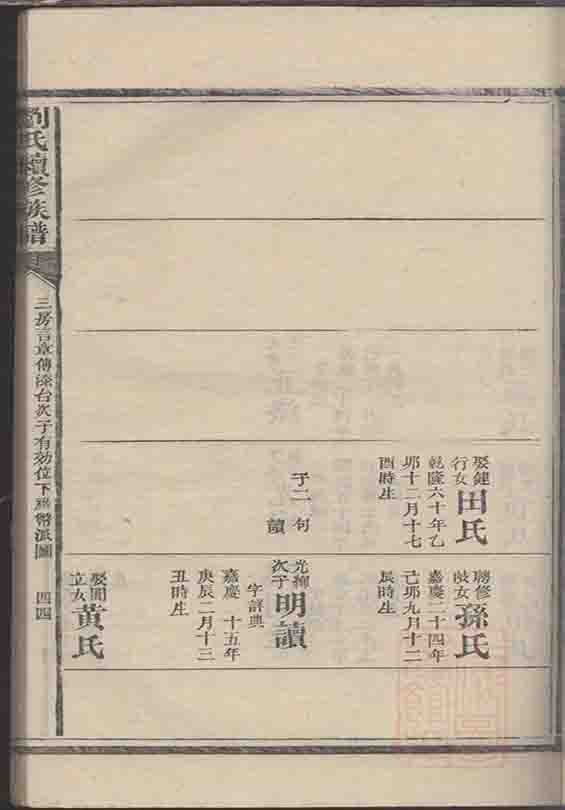 娶鍾
行女
田氏
乾隆六十年乙
卯十二月十七
酉時生
子二 句
讀
聘修
歧女
孫氏
嘉慶二十四年
己卯九月十二
辰時生
光
次子
明讀
字詳典
嘉慶十五年
庚辰二月十三
丑時生
娶聞
立女
黃氏
劉氏續修族譜
三房言章傳滦台次子有効位下
派圖
四四